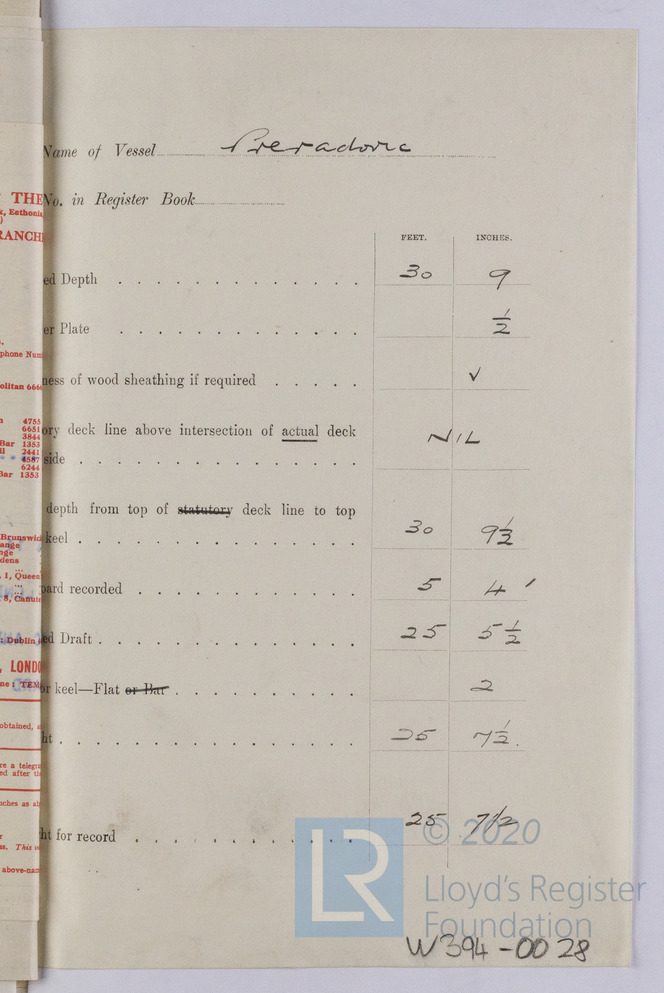 Name of Vessel Preradovic
No. in Register Book
FEET. INCHES.
ed Depth 30 9
er Plate 1/2
ness of wood sheathing if required ✓
ory deck line above intersection of actual deck
side NIL
depth from top of statutory deck line to top
keel 30 9 1/2
oard recorded 5 4
ed Draft 25 5 1/2
or keel—Flat or Bar 2
ht 25 7 1/2
ht for record 25 7 1/2
THE
RANCH
phone Num
olitan 666
4755
6651
3844
Bar 1353
2441
4587
6244
Bar 1353
Brunswick
ange
nge
dens
1, Queen
8, Canute
: Dublin
, LONDO
ne : TEM
obtained,
re a telegra
ed after th
nches as ab
s. This
above-nam
LR
© 2020
Lloyd's Register
Foundation
W394-0028